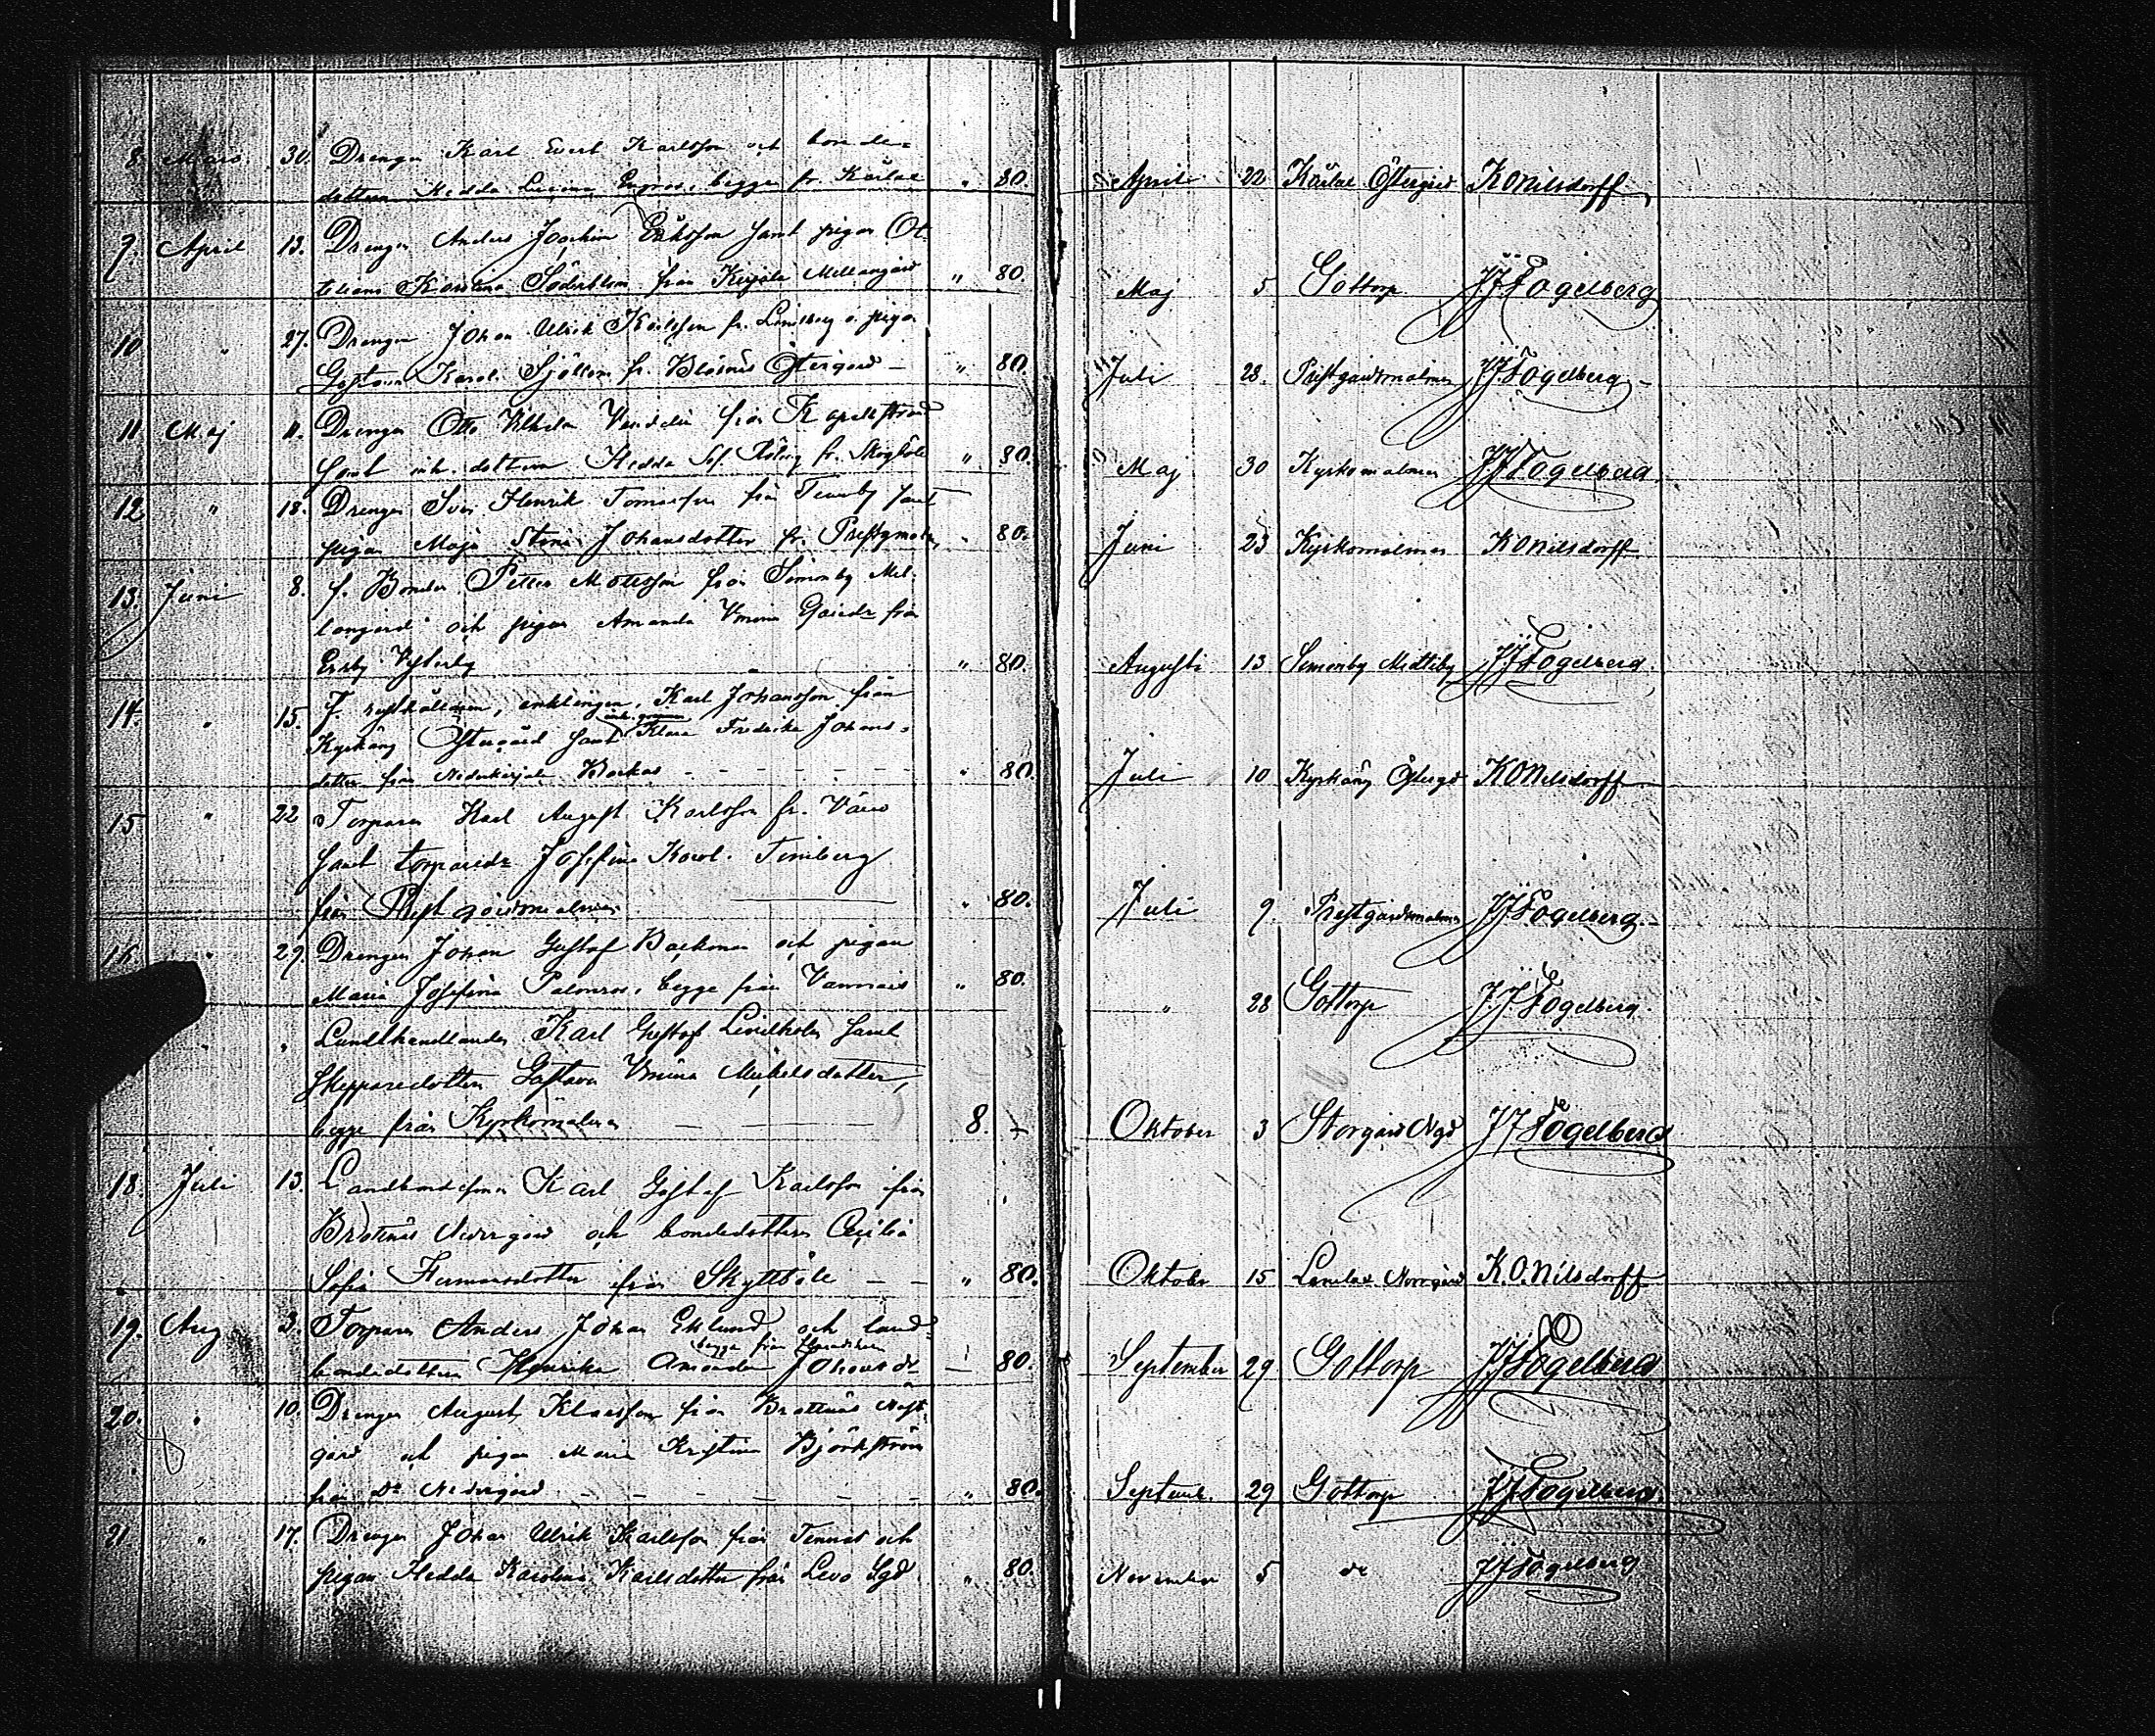 8. Mars 30. Drengen Karl Evert Karlsson och bonde-
dottren Hedda begge fr. Kärlax " 80. April 22 Kärlax Östergård K O Nilsdorff
9. April 13. Drengen Anders Joachim Eriksson samt pigan Ot-
tiliana Karolina Söderblom från Kirjala Mellangård " 80. Maj 5 Gottorp J J Fogelberg
10 " 27. Drengen Johan Ulrik Karlsson fr. Lemlberg o. pigan
Gustava Karol. Sjöblom fr. Bläsnäs Östergård " 80. Juli 28. Prestgårdsmalmen J J Fogelberg
11 Maj 11. Drengen Otto Vilhelm från Kapellstrand
samt inh. dottren Hedda Sof. fr. Skogböle " 80. Maj 30 Kyrkomalmen J J Fogelberg
12 " 18. Drengen Sven Henrik Tomasson från Tennby samt
pigan Maja Stina Johansdotter fr. Prestgmalm. " 80. Juni 23 Kyrkomalmen K O Nilsdorff
13. Juni 8. f. Bonden Petter Mattsson från Simonby Mel-
langård och pigan Amanda Vmina från
Ersby Vesterby " 80. Augusti 13 Simonby Medtiby J J Fogelberg
14. " 15. F. rusthållaren, enklingen, Karl Johansson från
Kyrkäng Östergård samt inh. pigan Klara Fredrika Johans-
dotter från Nederkirjala Backas " 80. Juli 10 Kyrkäng Östergd K O Nilsdorff
15 " 22 Torparen Karl August Karlsson fr. Vånå
samt torparedr Josefina Karol. Timberg
från Prestgårdsmalmen " 80. Juli 9. Prestgårdsmalmen J J Fogelberg
16. " 29. Drengen Johan Gustaf Backman och pigan
Maria Josefina Palmros, begge från Vannais " 80. " 28 Gottorp J J Fogelberg
" " Landthandlanden Karl Gustaf Lindholm samt
skepparedottren Gustava Vmina Mickelsdotter,
begge från Kyrkomalmen 8. – Oktober 3 Storgård Ngd J J Fogelberg
18. Juli 13. Landbondesonen Karl Gustaf Karlsson från
Brattnäs Nedergård och bondedottren Cecilia
Sofia Hermansdotter från Skyttböle " 80. Oktober 15 Lemlax Norrgård K. O. Nilsdorff
19. Aug 3. Torparen Anders Johan Eklund och land-
bondedottren Henrika Amanda Johansdr begge från — 80. September 29. Gottorp J J Fogelberg
20. " 10. Drengen August Klasson från Brattnäs Väst-
gård och pigan Maria Kristina Björkström
från Do Nedergård " 80. Septemb. 29 Gottorp J J Fogelberg
21 " 17. Drengen Johan Ulrik Karlsson från Tennäs och
pigan Hedda Karolina Karlsdotter från Levo Sgd " 80. November 5 do J J Fogelberg